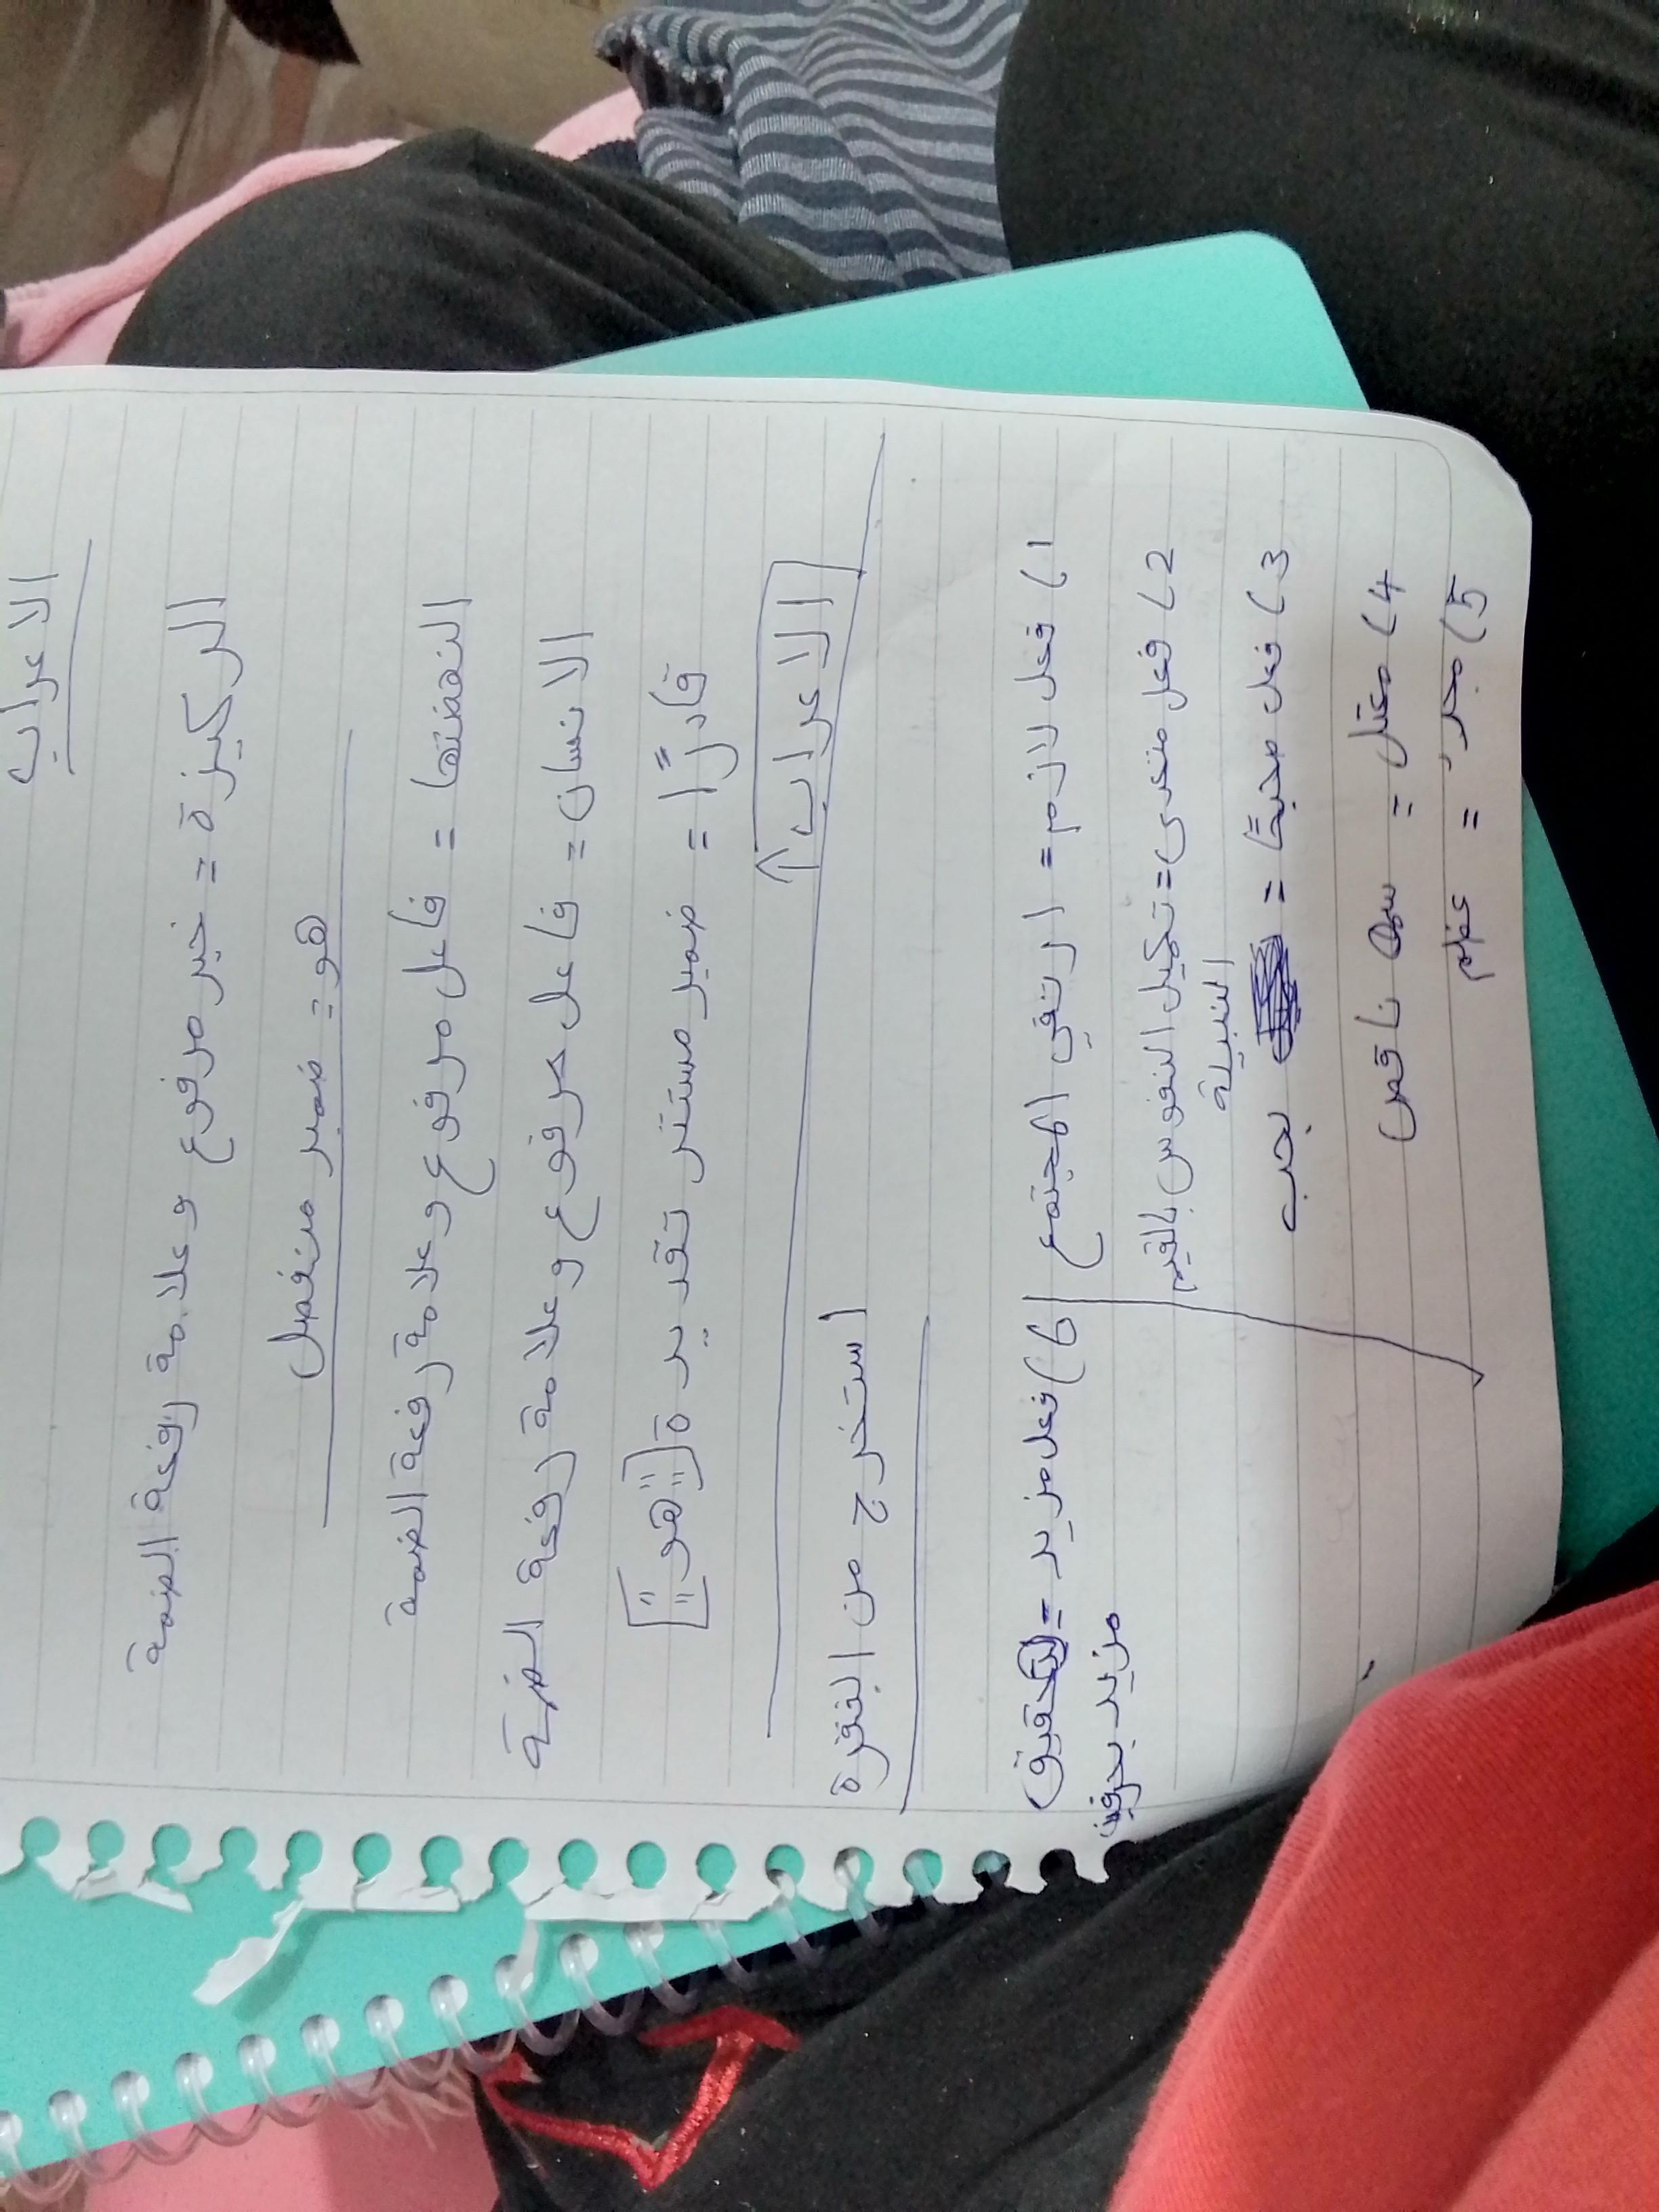 الاعراب
الركيزة = خبر مرفوع وعلامة رفعة الضمة
هو = ضمير منفصل
النهضتها = فاعل مرفوع وعلامة رفعة الضمة
الانسان = فاعل مرفوع وعلامة رفعة الضمة
قادرًا = ضمير مستتر تقديرة [" هو "]
الاعراب
استخرج من الفقرة
1) فعل لازم = ارتقي المجتمع
2) فعل متعدى = تكميل النفوس بالقيم
النبيلة
3) فعل صحيحًا = يحب
4) معتل = ناقص
5) مجرد = عظم
6) فعل مزيد = تحقيق
مزيد بحرفين